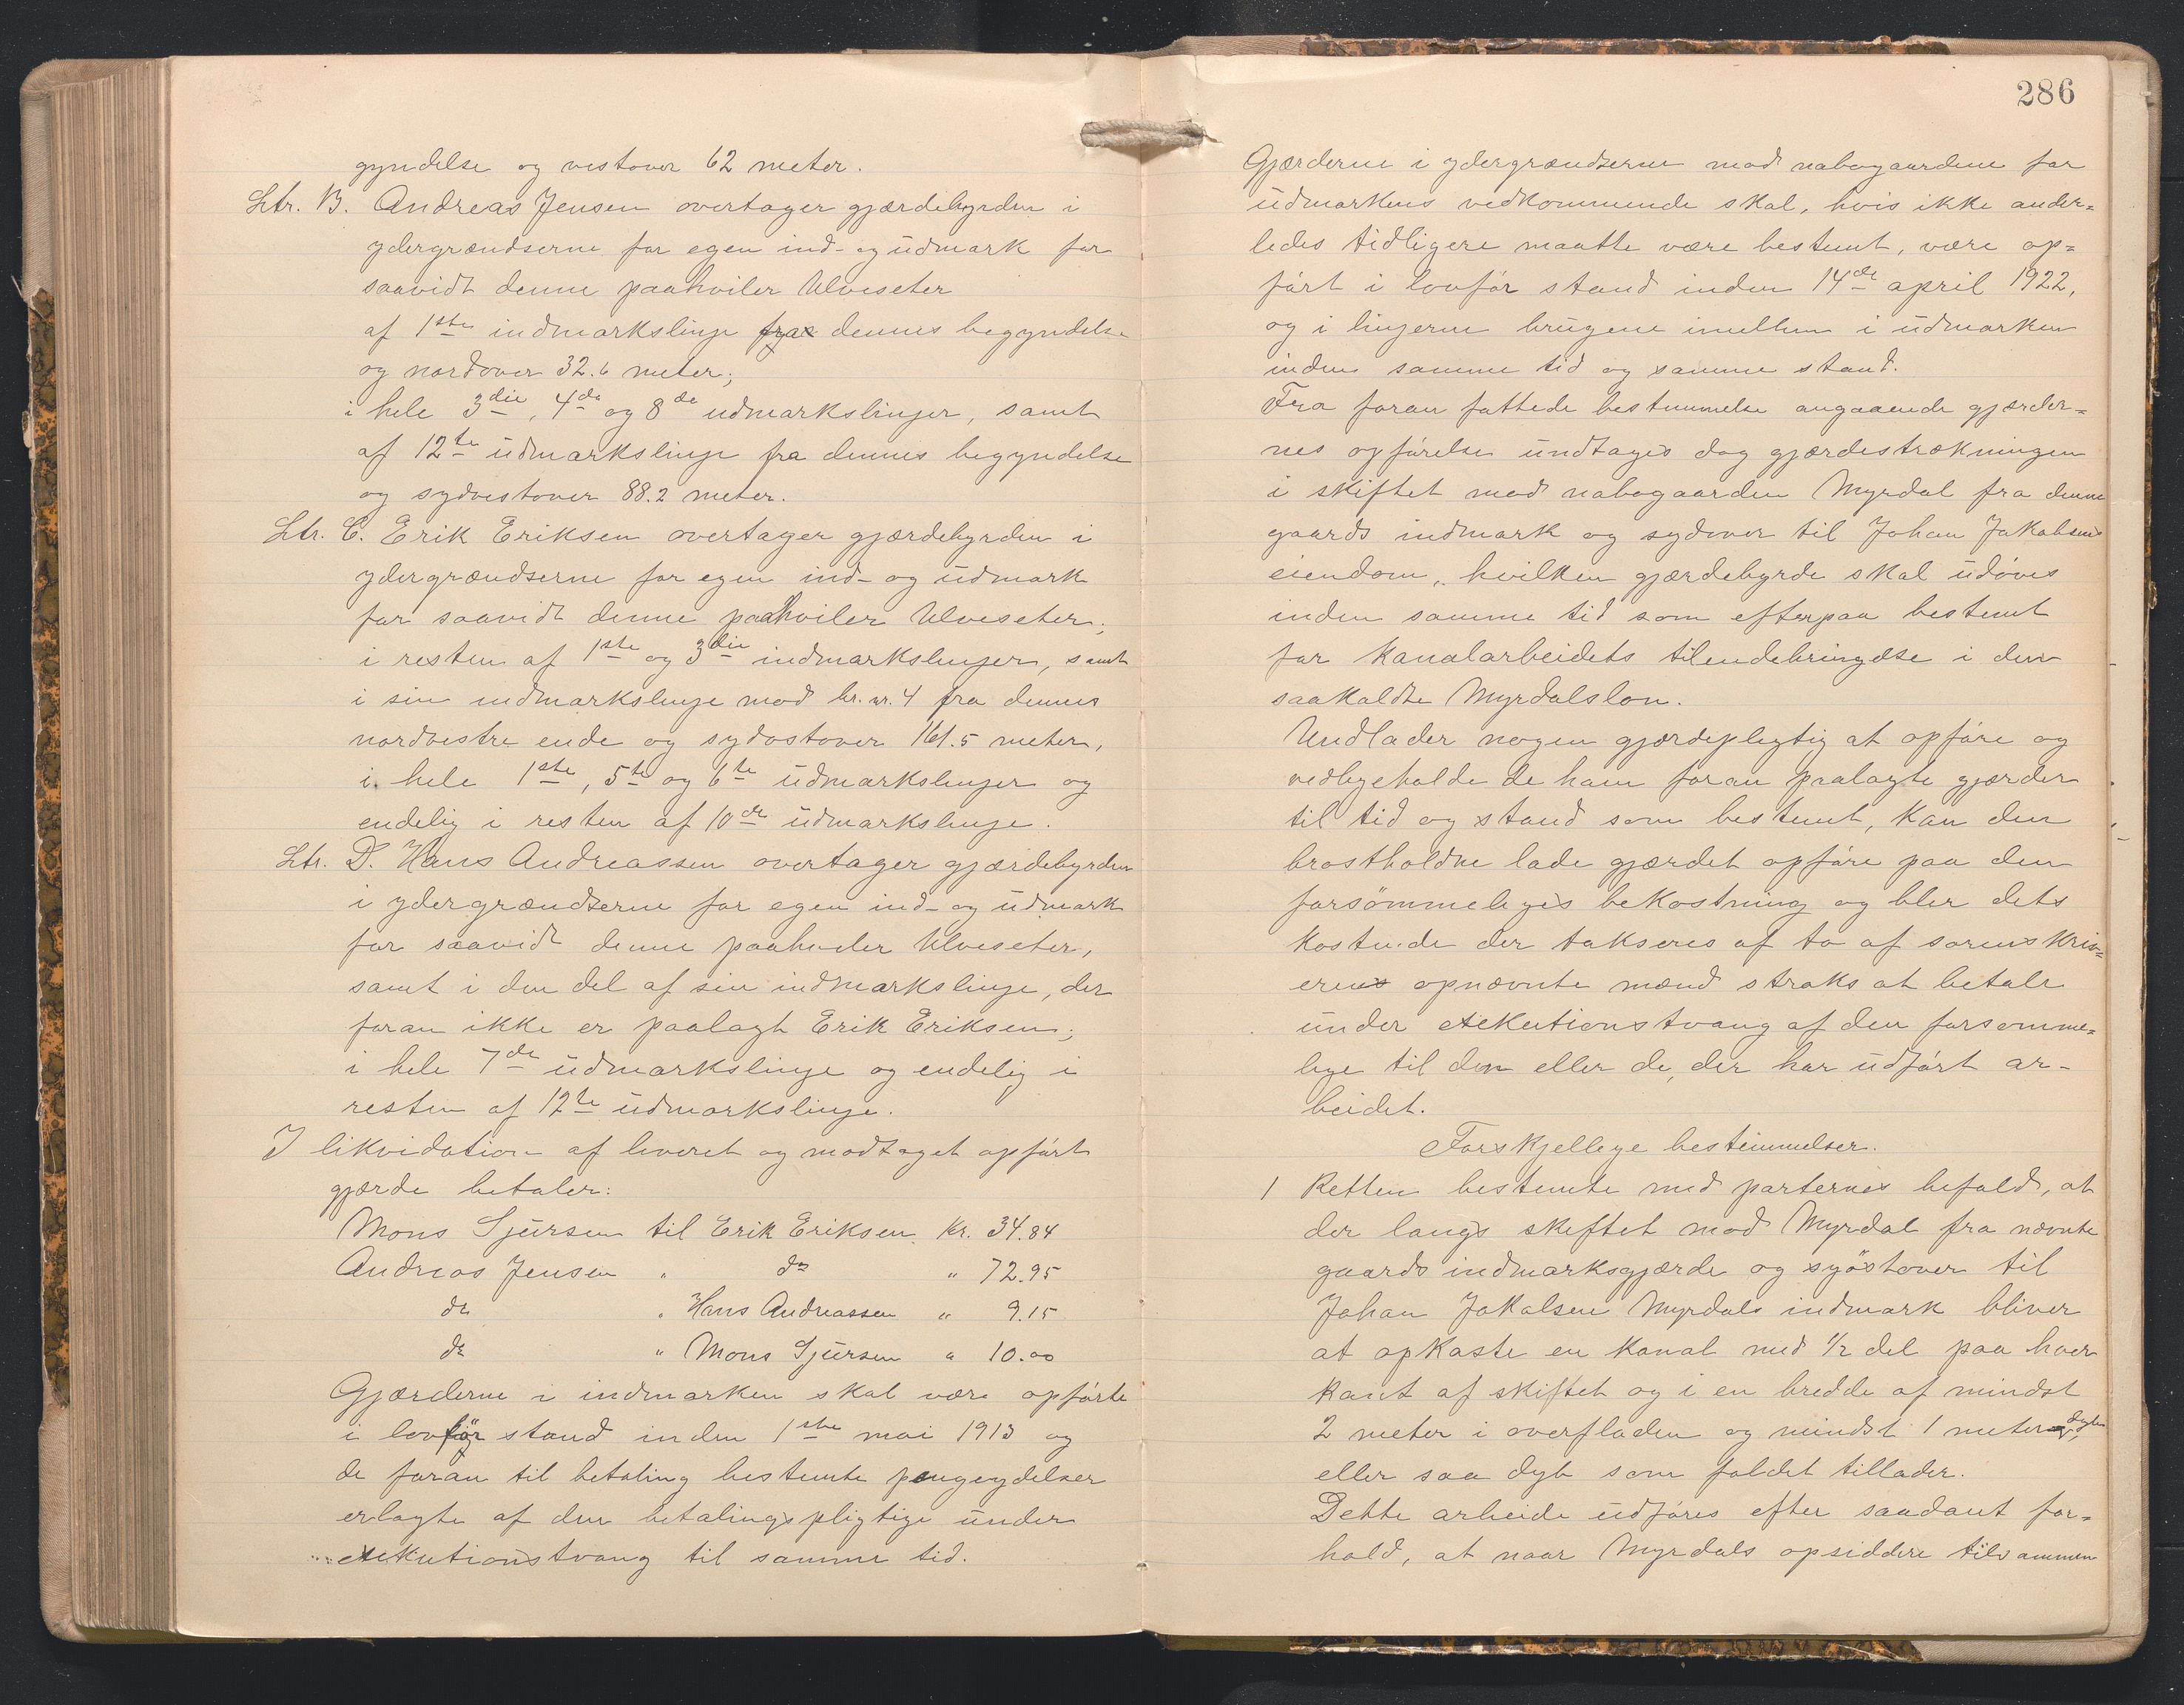 gyndelse og vestover 62 meter.
Ltr. B. Andreas Jensen overtager gjærdebyrden i
ydergrændserne for egen ind- og udmark for
saavidt denne paahviler Ulveseter
af 1ste indmarkslinje fra dennes begyndelse
og nordover 32.6 meter;
i hele 3die, 4de og 8de udmarkslinjer, samt
af 12te udmarkslinje fra dennes begyndelse
og sydvestover 88.2 meter.
Ltr. C. Erik Eriksen overtager gjærdebyrden i
ydergrændserne for egen ind- og udmark
for saavidt denne paahviler Ulveseter;
i resten af 1ste og 3die indmarkslinjer, samt
i sin indmarkslinje mod br. nr. 4 fra dennes
nordvestre ende og sydostover 161.5 meter,
i hele 1ste, 5te og 6te udmarkslinjer og
endelig i resten af 10de udmarkslinje.
Ltr. D. Hans Andreassen overtager gjærdebyrden
i ydergrændserne for egen ind- og udmark
for saavidt denne paahviler Ulveseter,
samt i den del af sin indmarkslinje, der
foran ikke er paalagt Erik Eriksen;
i hele 7de udmarkslinje og endelig i
resten af 12te udmarkslinje.
I likvidation af leveret og modtaget opført
gjærde betaler:
Mons Sjursen til Erik Eriksen Kr. 34.84
Andreas Jensen " do " 72.95
do " Hans Andreassen " 9.15
do " Mons Sjursen " 10.00
Gjærderne i indmarken skal være opførte
i lovfør stand inden 1ste mai 1913 og
de foran til betaling bestemte pengeydelser
erlagte af den betalingspligtige under
exekutionstvang til samme tid.
286
Gjærderne i ydergrændserne mod nabogaardene for
udmarkens vedkommende skal, hvis ikke ander=
ledes tidligere maatte være bestemt, være op=
ført i lovfør stand inden 14de april 1922,
og i linjerne brugene imellem i udmarken
inden samme tid og samme stand.
Fra foran fattede bestemmelse angaaende gjærder=
nes opførelse undtages dog gjærdestrækningen
i skiftet mod nabogaarden Myrdal fra denne
gaards indmark og sydover til Johan Jakobsens
eiendom, hvilken gjærdebyrde skal udøves
inden samme tid som efterpaa bestemt
for kanalarbeidets tilendebringelse i den
saakaldte Myrdalslon.
Undlader nogen gjærdepligtig at opføre og
vedligeholde de ham foran paalagte gjærder
til tid og stand som bestemt, kan den
brøstholdne lade gjærdet opføre paa den
forsømmeliges bekostning og blir dets
kostende der takseres af to af sorenskriv=
eren opnævnte mænd straks at betale
under exekutionstvang af den forsømme=
lige til den eller de, der har udført ar-
beidet.
Forskjellige bestemmelser.
1 Retten bestemte med parternes bifald, at
der langs skiftet mod Myrdal fra nævnte
gaards indmarksgjærde og sydostover til
Johan Jakobsen Myrdals indmark bliver
at opkaste en kanal med 1/2 del paa hver
kant af skiftet og i en bredde af mindst
2 meter i overfladen og mindst 1 meter dyb,
eller saa dyb som faldet tillader.
Dette arbeide udføres efter saadant for=
hold, at naar Myrdals opsiddere tilsammen